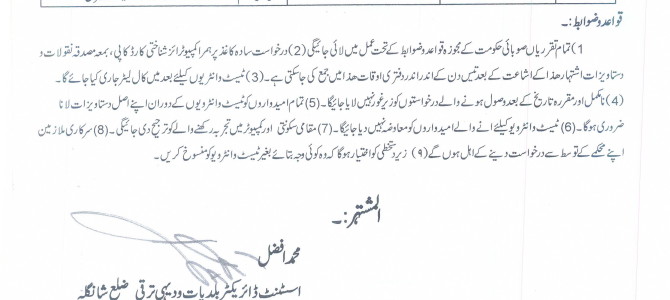 قواعد و ضوابط:۔
1) تمام تقرریاں صوبائی حکومت کے مجوزہ قواعد و ضوابط کے تحت عمل میں لائی جائیگی (2) درخواست سادہ کاغذ پر ہمراہ کمپیوٹرائز شناختی کارڈ کاپی، بمعہ مصدقہ نقولات د
ستاویزات اشتہار ھذا کے اشاعت کے بعد تیس دن کے اندر اندر دفتری اوقات ھذا میں جمع کی جاسکتی ہے۔ (3) ٹیسٹ و انٹرویوں کیلئے بعد میں کال لیٹر جاری کیا جائے گا۔
(4) نامکمل اور مقررہ تاریخ کے بعد وصول ہونے والے درخواستوں کو زیر غور نہیں لایا جائیگا۔ (5) تمام امیدواروں کو ٹیسٹ و انٹرویوں کے دوران اپنے اصل دستاویزات لانا
ضروری ہوگا۔ (6) ٹیسٹ و انٹرویو کیلئے انے والے امیدواروں کا معاوضہ نہیں دیا جائیگا۔ (7) مقامی سکونتی اور کمپیوٹر میں تجربہ رکھنے والے کو ترجیح دی جائیگی۔ (8) سرکاری ملازمین
اپنے محکمے کے توسط سے درخواست دینے کے اہل ہوں گے (۹) زیر دستخطی کو اختیار ہوگا کہ وہ کوئی وجہ بتائے بغیر ٹیسٹ و انٹرویو کو منسوخ کریں۔
المشتہر:۔
محمد افضل
اسسٹنٹ ڈائریکٹر بلدیات و دیہی ترقی ضلع شانگلہ